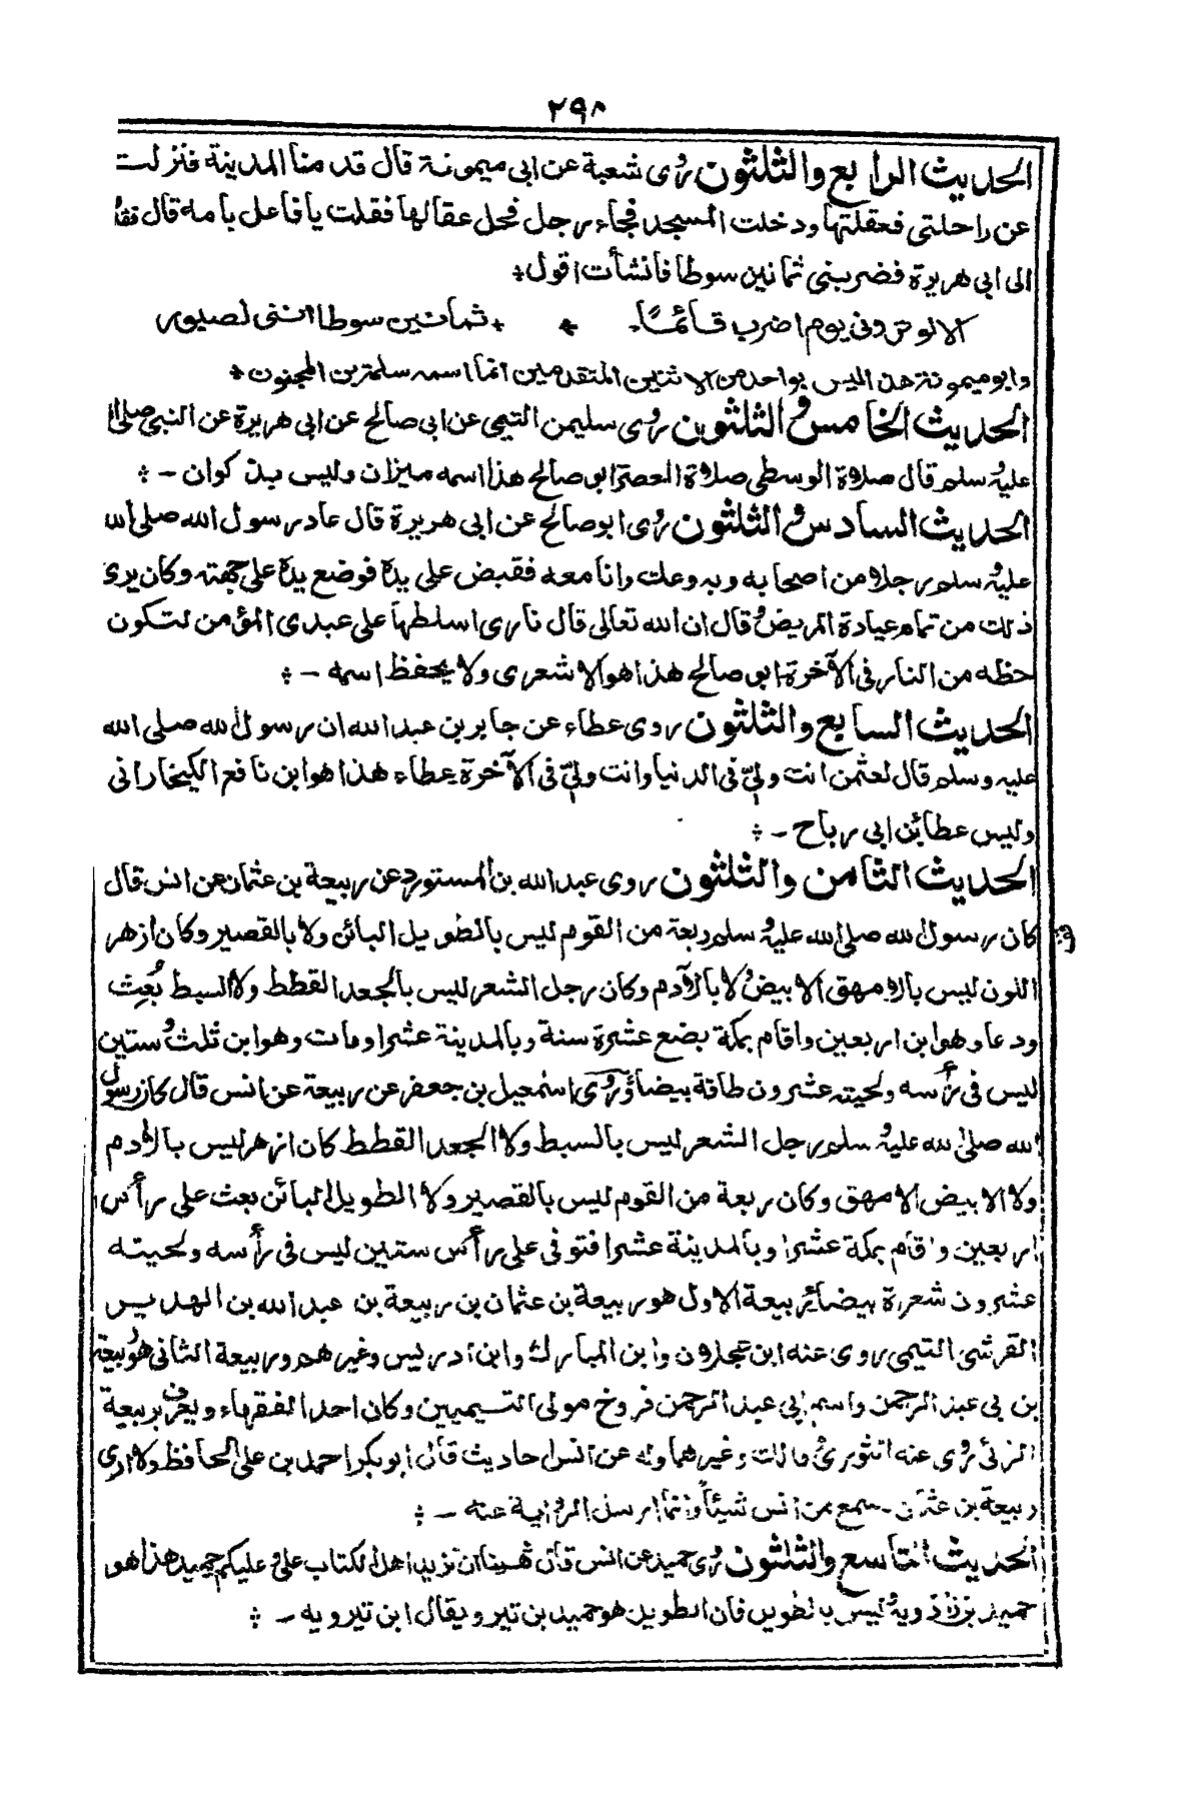 ٢٩٨
الحديث الرابع والثلثون روى شعبة عن ابى ميمونة قال قدمنا المدينة فنزلت
عن راحلتى فعقلتها ودخلت المسجد فجاء رجل فحل عقالها فقلت يا فاعل بامه قال
الى ابى هريرة فضربنى ثمانين سوطا فانشأت اقول
الا لو ترونى يوم اضرب قائما ثمانين سوطا اننى لصبور
وابو ميمونة هذا ليس بواحد من الاثنين المتقدمين انما اسمه سلمة بن المجنون
الحديث الخامس والثلثون روى سليمن التيمى عن ابى صالح عن ابى هريرة عن النبى صلى الله
عليه وسلم قال صلاة الوسطى صلاة العصر ابو صالح هذا اسمه ميزان وليس بذكوان
الحديث السادس والثلثون روى ابو صالح عن ابى هريرة قال عاد رسول الله صلى الله
عليه وسلم رجلا من اصحابه وبه وعك وانا معه فقبض على يده فوضع يده على جبهته وكان يرى
ذلك من تمام عيادة المريض وقال ان الله تعالى قال نارى اسلطها على عبدى المؤمن لتكون
حظه من النار فى الآخرة ابو صالح هذا هو الاشعرى ولا يحفظ اسمه
الحديث السابع والثلثون روى عطاء عن جابر بن عبد الله ان رسول الله صلى الله
عليه وسلم قال لعثمن انت وليّ فى الدنيا وانت وليّ فى الآخرة عطاء هذا هو ابن نافع الكيخارانى
وليس عطاء بن ابى رباح
الحديث الثامن والثلثون روى عبد الله بن المستورد عن ربيعة بن عثمان عن انس قال
كان رسول الله صلى الله عليه وسلم ربعة من القوم ليس بالطويل البائن ولا بالقصير وكان ازهر
اللون ليس بالامهق الابيض ولا بالآدم وكان رجل الشعر ليس بالجعد القطط ولا السبط بُعِث
ودعا وهو ابن اربعين واقام بمكة بضع عشرة سنة وبالمدينة عشرا ومات وهو ابن ثلث وستين
ليس فى رأسه ولحيته عشرون طاقة بيضاء وروى اسمعيل بن جعفر عن ربيعة عن انس قال كان رسول
الله صلى الله عليه وسلم رجل الشعر ليس بالسبط ولا الجعد القطط كان ازهر ليس بالآدم
ولا الابيض الامهق وكان ربعة من القوم ليس بالقصير ولا الطويل البائن بعث على رأس
اربعين واقام بمكة عشرا وبالمدينة عشرا فتوفى على رأس ستين ليس فى رأسه ولحيته
عشرون شعرة بيضاء ربيعة الاول هو ربيعة بن عثمان بن ربيعة بن عبد الله بن الهدير
القرشى التيمى روى عنه ابن عجلان وابن المبارك وابن ادريس وغيرهم وربيعة الثانى هو ربيعة
بن ابى عبد الرحمن واسم ابى عبد الرحمن فروخ مولى التيميين وكان احد الفقهاء ويعرف بربيعة
الرأى روى عنه الثورى ومالك وغيرهما وله عن انس احاديث قال ابو بكر احمد بن على الحافظ ولا ارى
ربيعة بن عثمان سمع من انس شيئاً وانما ارسل الرواية عنه
الحديث التاسع والثلثون روى حميد عن انس قال نهينا ان نزيد اهل الكتاب على وعليكم حميد هذا هو
حميد بن زاذويه وليس بالطويل فان الطويل هو حميد بن تير ويقال ابن تيرويه